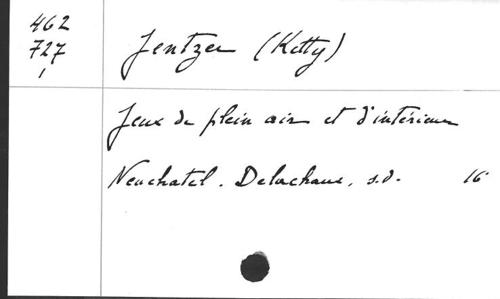 462
727
1
Jentzer (Ketty)
Jeux de plein air et d'intérieur
Neuchatel. Delachaux, s.d. 16°